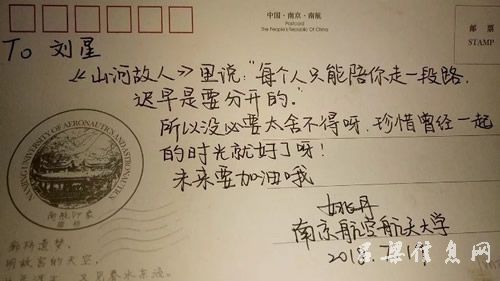 中国·南京·南航
Postcard
The People's Republic Of China
邮 票
STAMP
To 刘星
《山河故人》里说："每个人只能陪你走一段路，
迟早是要分开的."
所以没必要太舍不得呀，珍惜曾经一起
的时光就好了呀！
未来要加油哦
NANJING UNIVERSITY OF AERONAUTICS AND ASTRONAUTICS
南航印象
南京航空航天大学
明故宫的天空
吕梁信息网